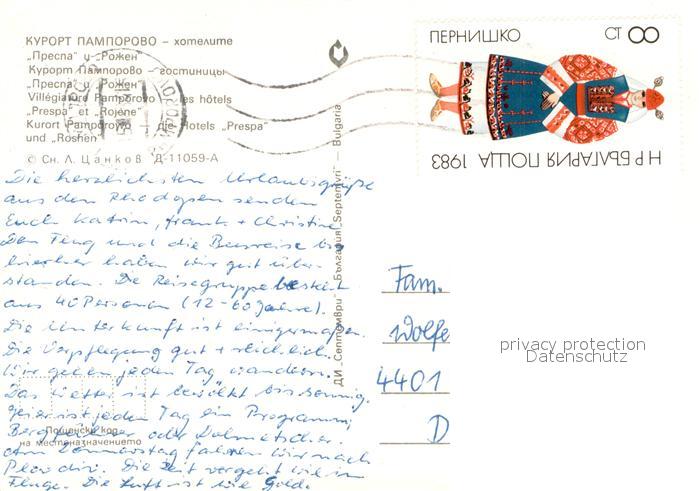 КУРОРТ ПАМПОРОВО – хотелите
„Преспа" и „Рожен"
Курорт Пампорово – гостиницы
„Преспа" и „Рожен"
Villégiature Pamporovo – les hôtels
"Prespa" et "Rojène"
Kurort Pamporovo – die Hotels „Prespa"
und „Roshen"
© Сн. Л. Цанков Д-11059-А
Die herzlichsten Urlaubsgrüße
aus den Rhodopen senden
Euch Katrin, Frank + Christine
Den Flug und die Busreise bis
hierher haben wir gut über-
standen. Die Reisegruppe besteht
aus 40 Personen (12-60 Jahre).
Die Unterkunft ist einigermaßen.
Die Verpflegung gut + reichlich.
Wir gehen jeden Tag wandern.
Das Wetter ist bewölkt bis sonnig.
Hier ist jeden Tag ein Programm,
Bergführer oder Dolmetscher.
Am Donnerstag fahren wir nach
Plovdiv. Die Zeit vergeht wie im
Fluge. Die Luft ist wie Gold.
Пощенски код
на местоназначението
ДИ „Септември" – България „Septemvri" – Bulgaria
ПЕРНИШКО
СТ 8
НР БЪЛГАРИЯ ПОЩА 1983
Fam.
Wolfe
4401
D
privacy protection
Datenschutz